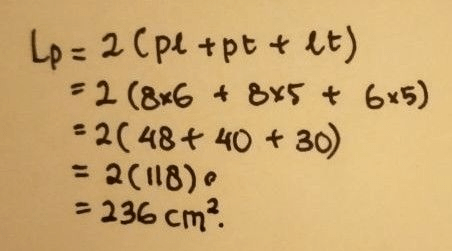 Lp = 2 (pl + pt + lt)
= 2 (8x6 + 8x5 + 6x5)
= 2 ( 48 + 40 + 30)
= 2 (118)
= 236 cm².